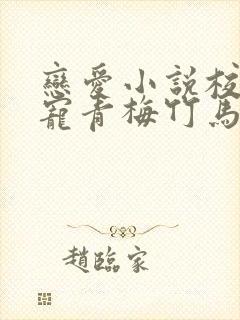 戀愛小說校
寵青梅竹馬
趙臨家